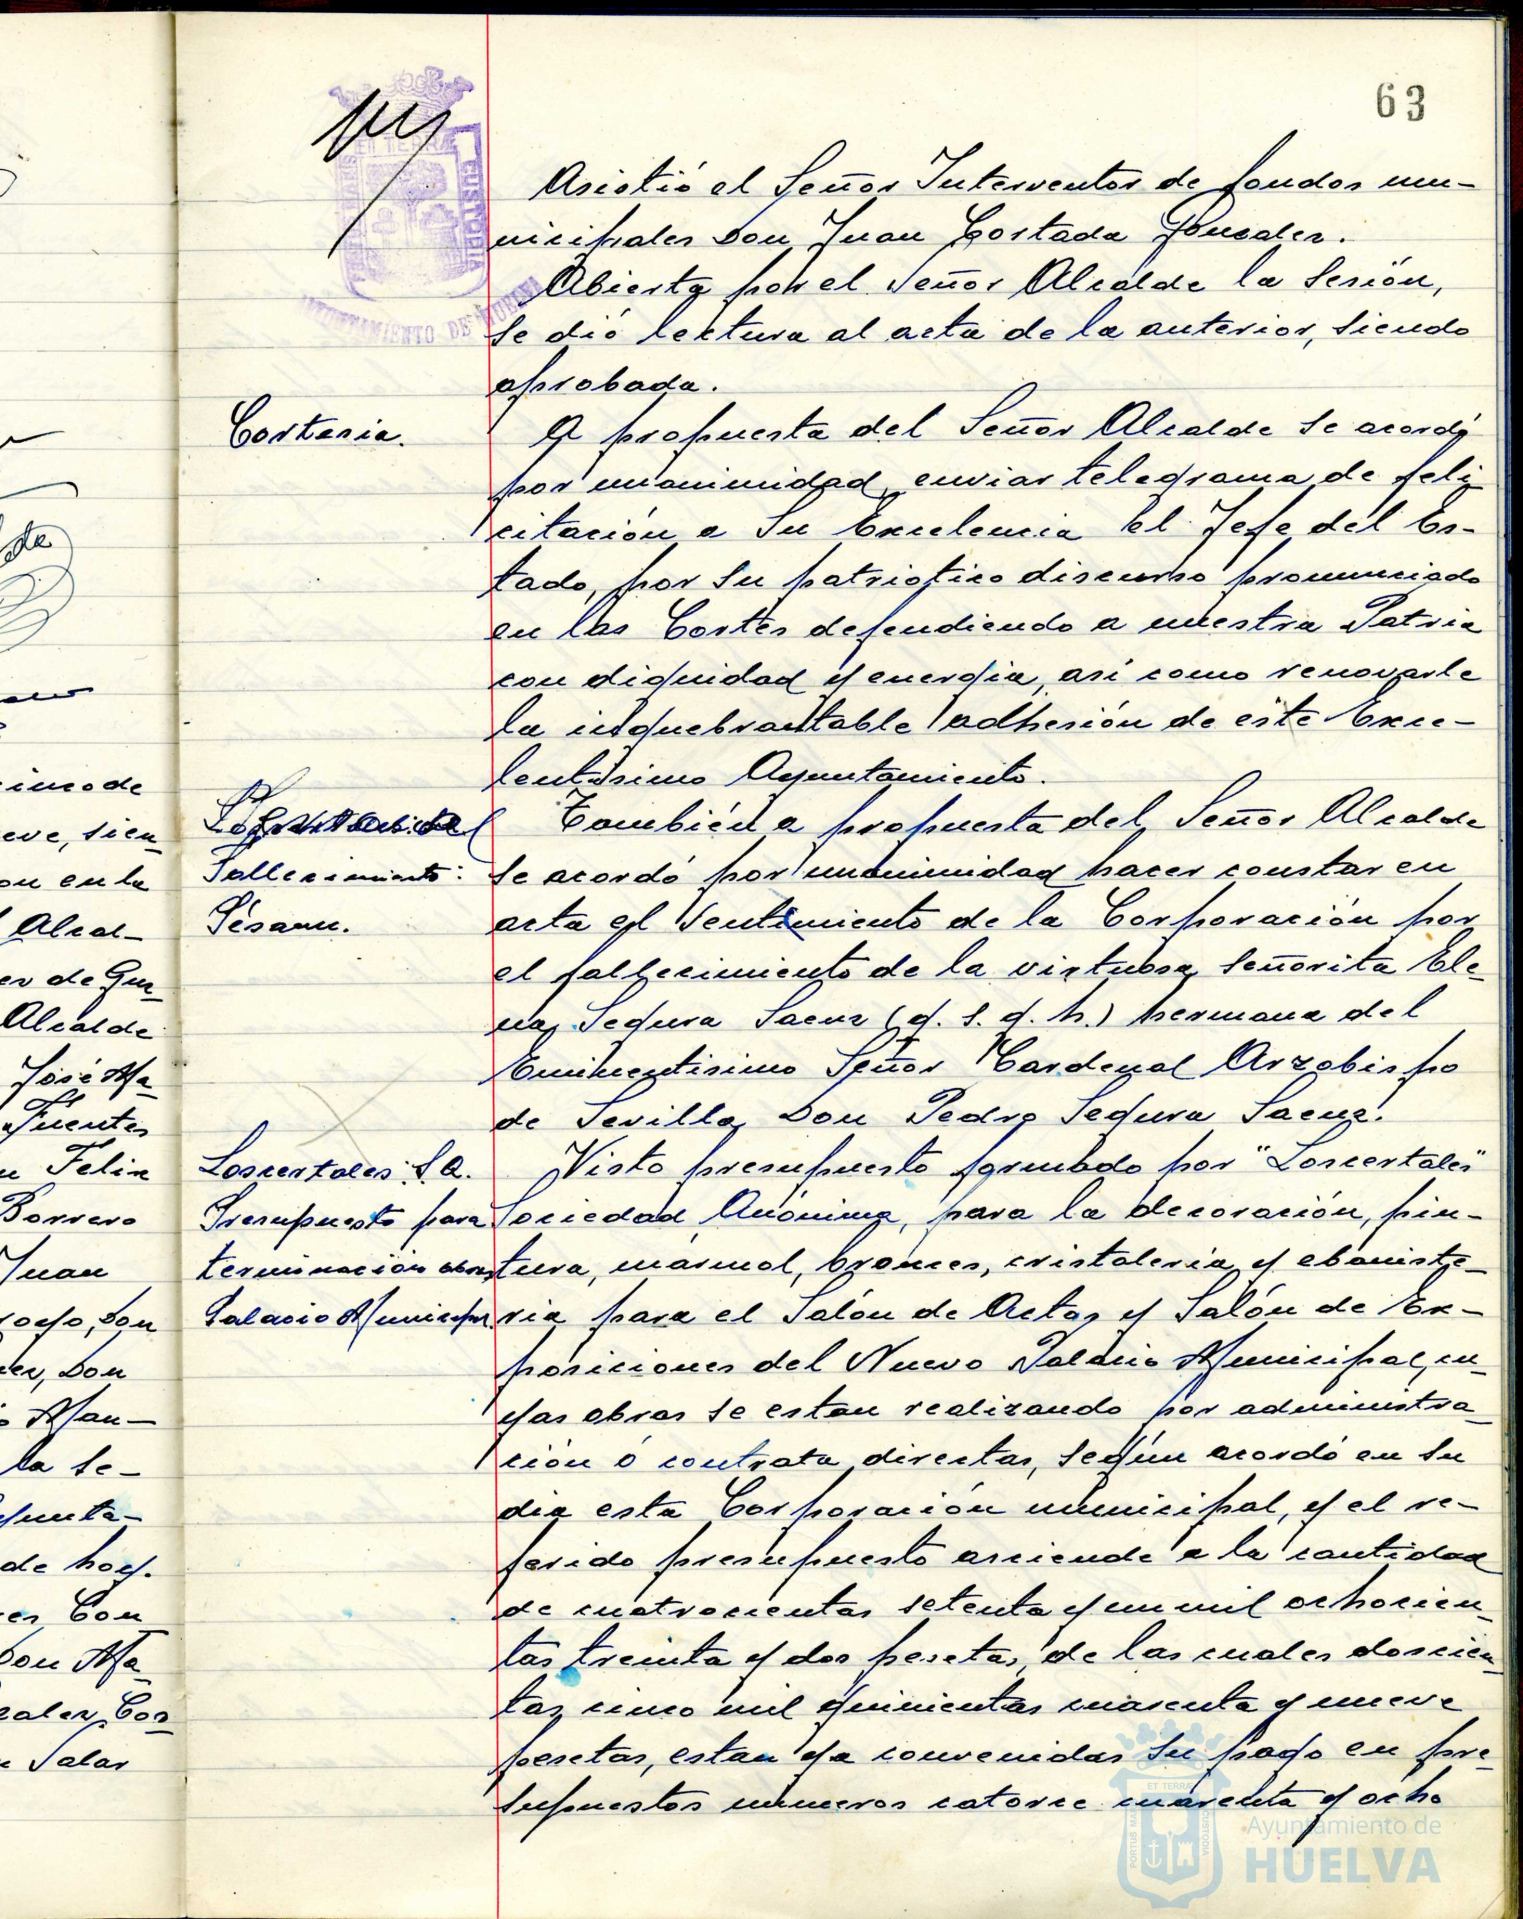 63
Asistió el Señor Interventor de fondos mu-
nicipales Don Juan Cortada Gonzalez.
Abierta por el Señor Alcalde la Sesión,
se dió lectura al acta de la anterior, siendo
aprobada.
Cortesia.
A propuesta del Señor Alcalde se acordó
por unanimidad enviar telegrama de feli-
citación a Su Excelencia el Jefe del Es-
tado, por su patriotico discurso pronunciado
en las Cortes defendiendo a nuestra Patria
con dignidad y energia, asi como renovarle
la inquebrantable adhesión de este Exce-
lentisimo Ayuntamiento.
Fallecimiento:
Pésame.
También a propuesta del Señor Alcalde
se acordó por unanimidad hacer constar en
acta el sentimiento de la Corporación por
el fallecimiento de la virtuosa Señorita Ele-
na Segura Saenz (q. s. g. h.) hermana del
Eminentisimo Señor Cardenal Arzobispo
de Sevilla Don Pedro Segura Saenz.
Loscertales S.A.
Presupuesto para
terminación obras
Palacio Municipal.
Visto presupuesto formulado por "Loscertales"
Sociedad Anónima, para la decoración, pin-
tura, marmol, bronces, cristaleria y ebaniste-
ria para el Salón de Actos y Salón de Ex-
posiciones del Nuevo Palacio Municipal, cu-
yas obras se estan realizando por administra-
ción ó contrata directas, según acordó en su
dia esta Corporación municipal, y el re-
ferido presupuesto asciende a la cantidad
de cuatrocientas setenta y un mil ochocien-
tas treinta y dos pesetas, de las cuales doscien-
tas cinco mil quinientas cuarenta y nueve
pesetas, estan ya convenidas su pago en pre-
supuestos numeros catorce cuarenta y ocho
ET TERRA
CUSTODIA
AYUNTAMIENTO DE HUELVA
cinco de
eve, sien-
on en la
Alcal-
er de Guz-
Alcalde
José Ma-
Fuentes
Felix
Borrero
Juan
royo, Don
er, Don
Man-
la Se-
yunta-
de hoy.
er Con
Don Ma-
zalez Cor-
Salar
ET TERRA
PORTUS MARIS
CUSTODIA
Ayuntamiento de
HUELVA